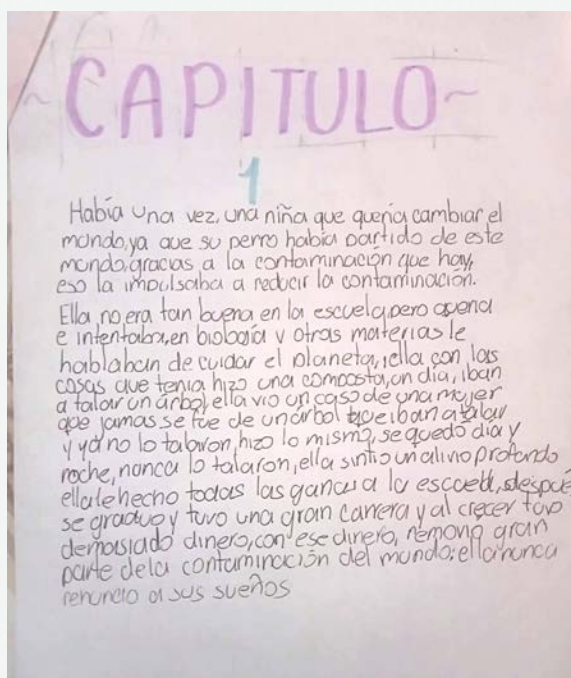 ~CAPITULO~
1
Había una vez, una niña que quería cambiar el
mundo, ya que su perro había partido de este
mundo, gracias a la contaminación que hay,
eso la impulsaba a reducir la contaminación.
Ella no era tan buena en la escuela, pero quería
e intentaba, en biología y otras materias le
hablaban de cuidar el planeta, ella con las
cosas que tenía hizo una composta, un día, iban
a talar un árbol, ella vio un caso de una mujer
que jamas se fue de un árbol que iban a talar
y ya no lo talaron, hizo lo mismo, se quedo día y
noche, nunca lo talaron, ella sintio un alivio profundo
ella le hecho todas las ganas a la escuela, después
se graduo y tuvo una gran carrera y al crecer tuvo
demasiado dinero, con ese dinero, removio gran
parte de la contaminación del mundo, ella nunca
renuncio a sus sueños